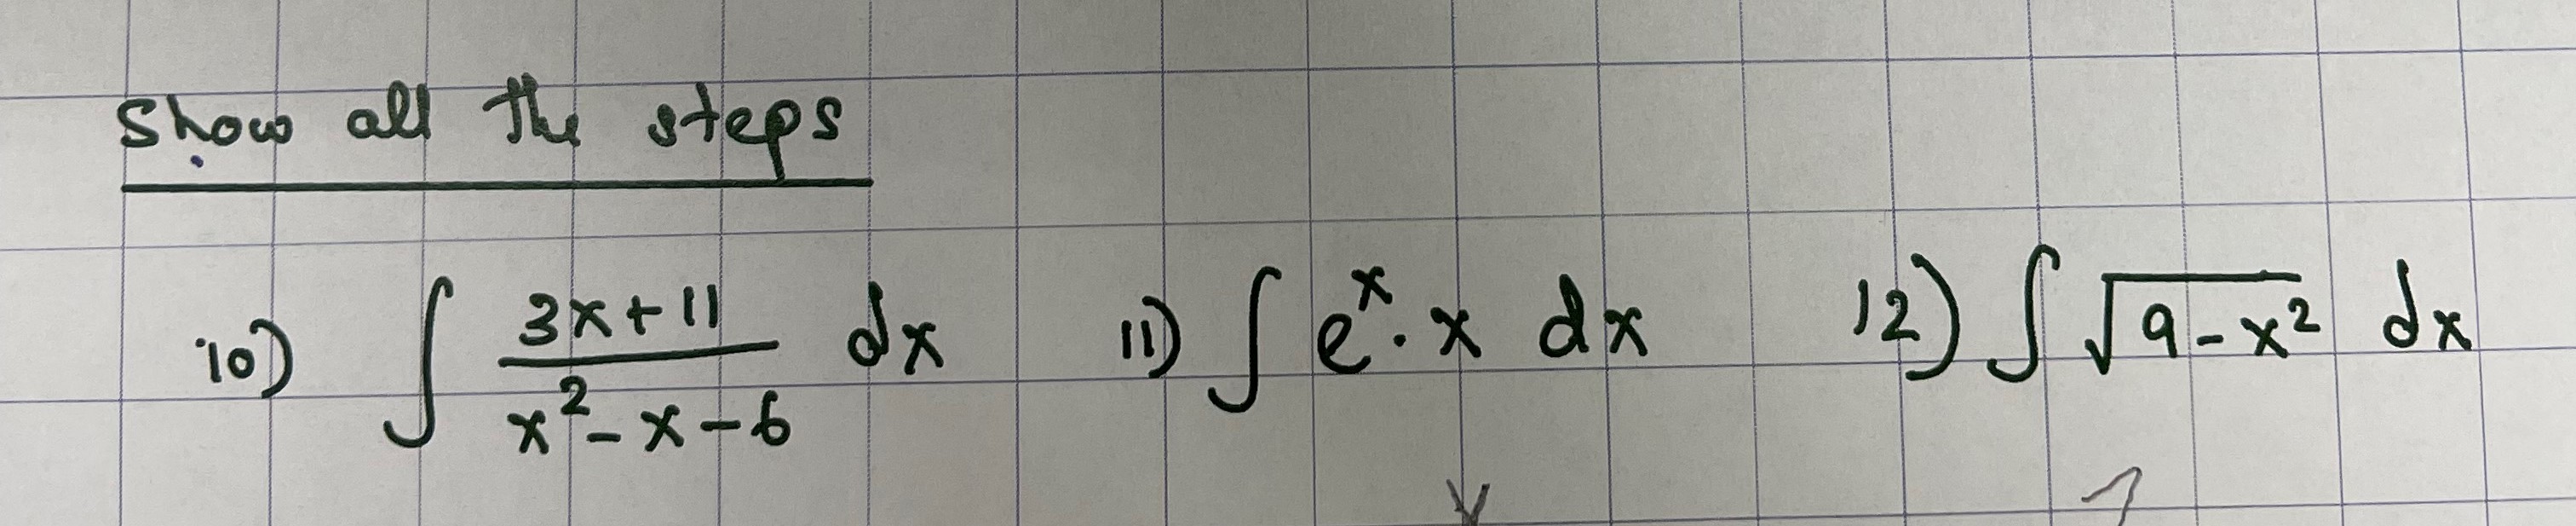 Show all the steps
10) ∫ (3x+11)/(x²-x-6) dx   11) ∫ eˣ·x dx   12) ∫ √(9-x²) dx